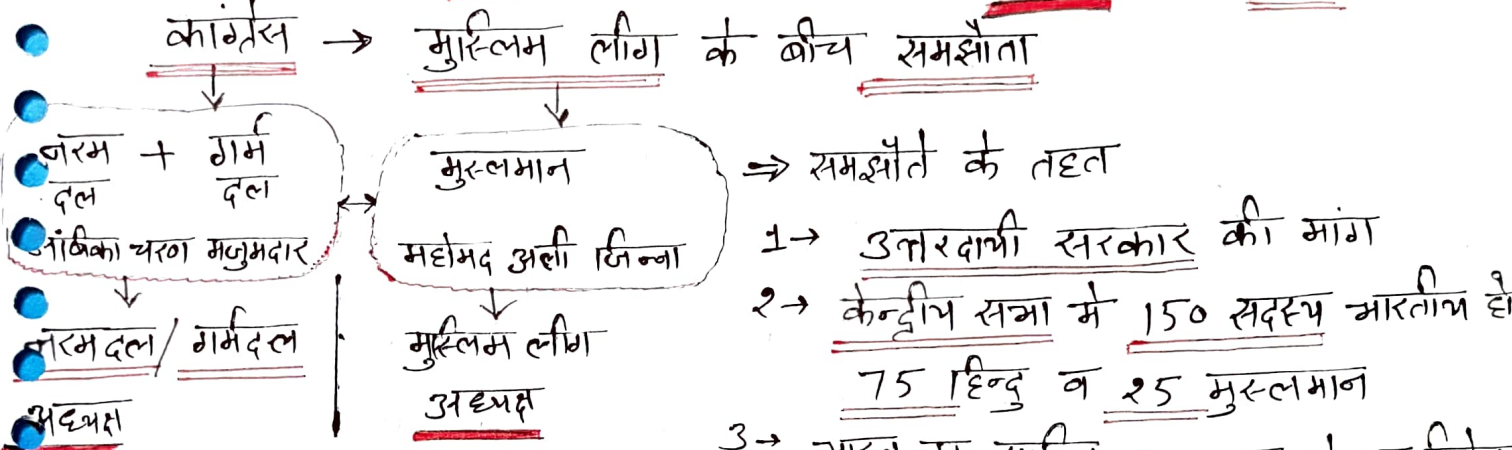 कांग्रेस → मुस्लिम लीग के बीच समझौता
नरम दल + गर्म दल
अंबिका चरण मजुमदार
नरमदल / गर्मदल
अध्यक्ष
मुस्लमान
महोमद अली जिन्ना
मुस्लिम लीग
अध्यक्ष
⇒ समझौते के तहत
1→ उत्तरदायी सरकार की मांग
2→ केन्द्रीय सभा मे 150 सदस्य भारतीय हो
75 हिन्दु व 25 मुस्लमान
3→